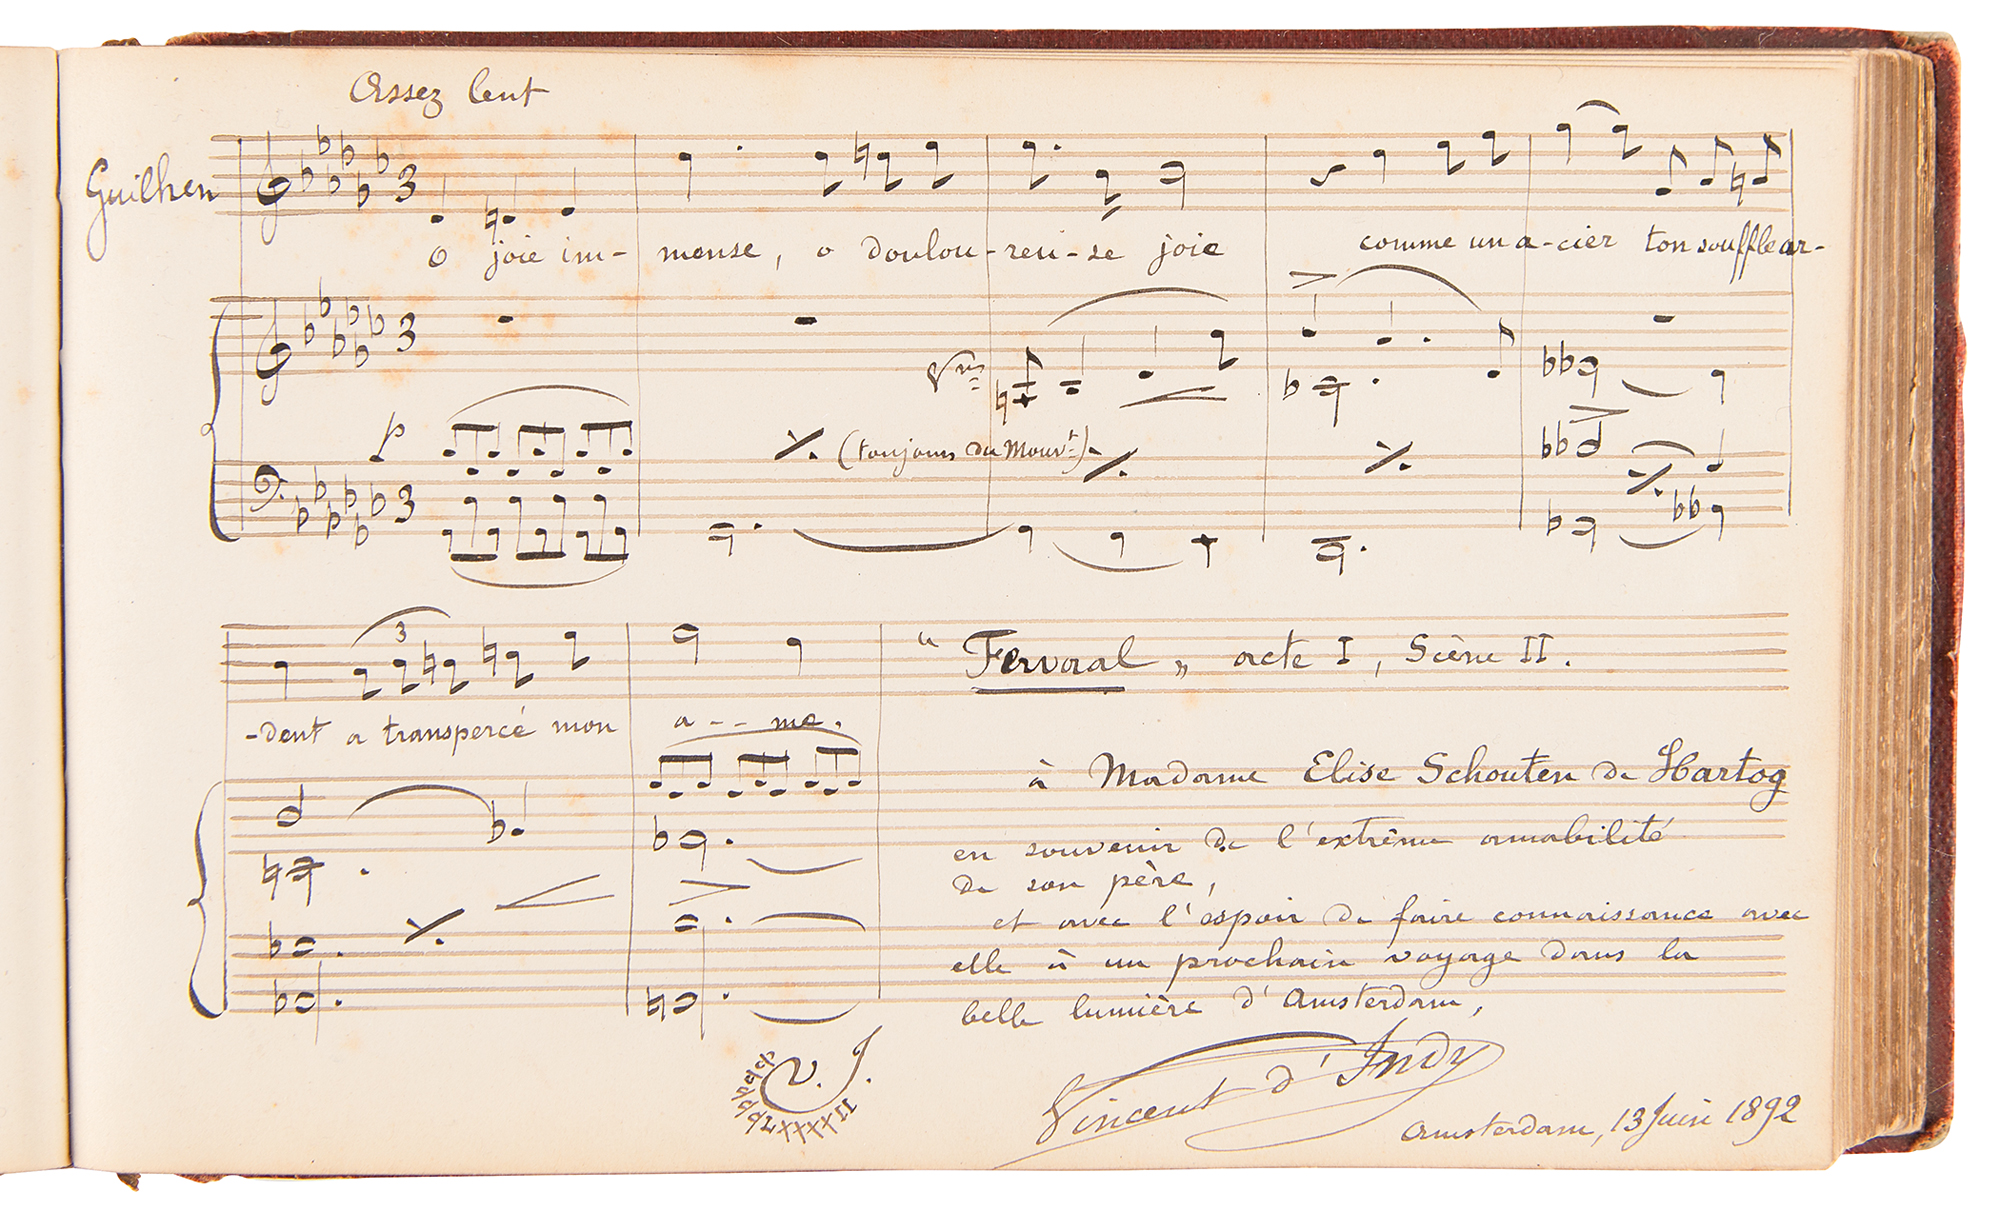 Assez lent
Guilhen
3
o joie im- mense, o doulou-reu-se joie comme un a-cier ton souffle ar-
3
Vns
p
(toujours du Mouvt.)
3
3
-dent a transpercé mon a - - me.
"Fervaal" acte I, Scène II.
à Madame Elise Schouten de Hartog
en souvenir de l'extrême amabilité
de son père,
et avec l'espoir de faire connaissance avec
elle à un prochain voyage dans la
belle lumière d'Amsterdam,
V. I.
Vincent d'Indy
Amsterdam, 13 Juin 1892